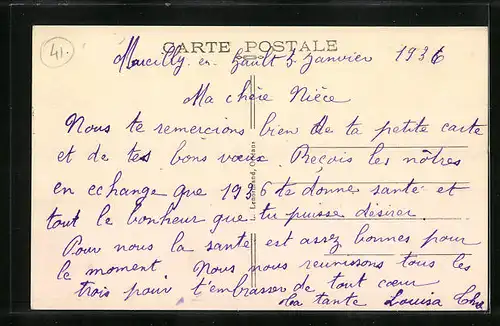 41.
CARTE POSTALE
Marcilly en Gault 5 Janvier 1936
Ma chère Nièce
Nous te remercions bien de ta petite carte
et de tes bons vœux. Reçois les nôtres
en echange que 1936 te donne santé et
tout le bonheur que tu puisse désirer.
Pour nous la santé est assez bonnes pour
le moment. Nous nous reunissons tous les
trois pour t'embrasser de tout cœur
La tante Louisa